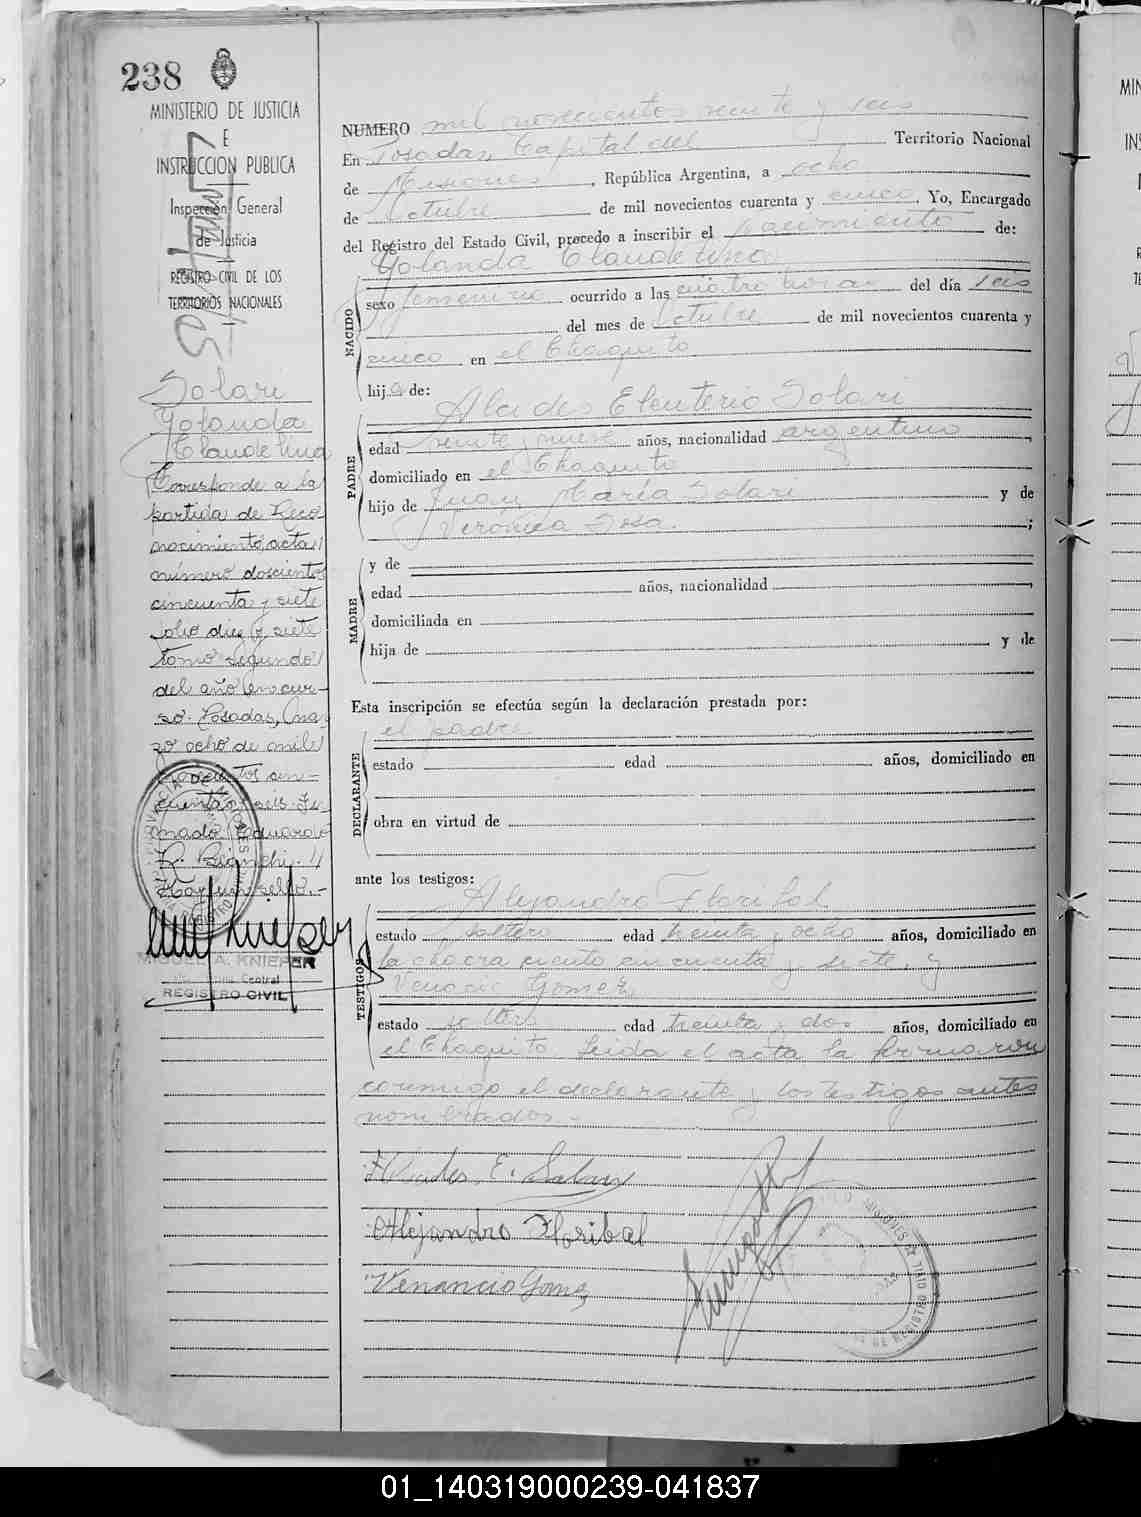 238
MINISTERIO DE JUSTICIA
E
INSTRUCCION PUBLICA
Inspección General
de Justicia
REGISTRO CIVIL DE LOS
TERRITORIOS NACIONALES
Solari
Yolanda
Claudelina
Corresponde a la
partida de Reco-
nocimiento, acta
número doscientos
cincuenta y siete
folio diez y siete
tomo segundo
del año en cur-
so. Posadas, ma-
zo ocho de mil
novecientos cin-
cuenta y seis. Fir-
mado Eduardo
R. Bianchi.
Hay un sello.-
MIGUEL A. KNIEPER
Central
REGISTRO CIVIL
NUMERO mil novecientos veinte y seis
En Posadas, Capital del Territorio Nacional
de Misiones, República Argentina, a ocho
de Octubre de mil novecientos cuarenta y cinco. Yo, Encargado
del Registro del Estado Civil, procedo a inscribir el nacimiento de:
NACIDO
Yolanda Claudelina
sexo femenino ocurrido a las cuatro horas del día seis
del mes de Octubre de mil novecientos cuarenta y
cinco en el Chaquito
hija de:
PADRE
Alcides Eleuterio Solari
edad veinte y nueve años, nacionalidad argentino,
domiciliado en el Chaquito
hijo de Juan María Solari y de
Verónica Sosa.;
MADRE
y de
edad años, nacionalidad,
domiciliada en
hija de y de
Esta inscripción se efectúa según la declaración prestada por:
DECLARANTE
el padre
estado edad años, domiciliado en
obra en virtud de
ante los testigos:
TESTIGOS
Alejandro Floribal
estado soltero edad treinta y ocho años, domiciliado en
la chacra ciento cincuenta y siete, y
Venancio Gomez,
estado soltero edad treinta y dos años, domiciliado en
el Chaquito. Leida el acta la firmaron
conmigo el declarante y los testigos antes
nombrados.-
Alcides E. Solari
Alejandro Floribal
Venancio Gomez
01_140319000239-041837